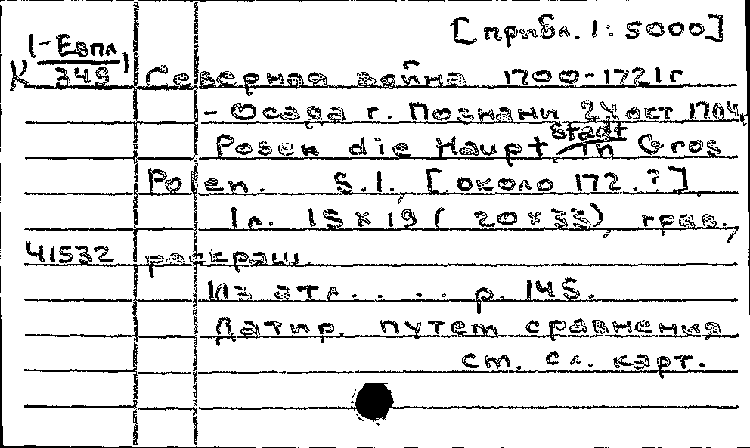 [прибл. 1:5000]
К 1-Евпл
349
Северная война 1700-1721г
- Осада г. Познани 24 окт 1704.
Posen die Haupt stadt in Gros
Polen. S.l., [около 172.?]
1 л. 15 x 19 ( 20 x 33), грав.,
41532 раскраш.
Из атл. . . . р. 145.
Датир. путем сравнения
ст. сл. карт.